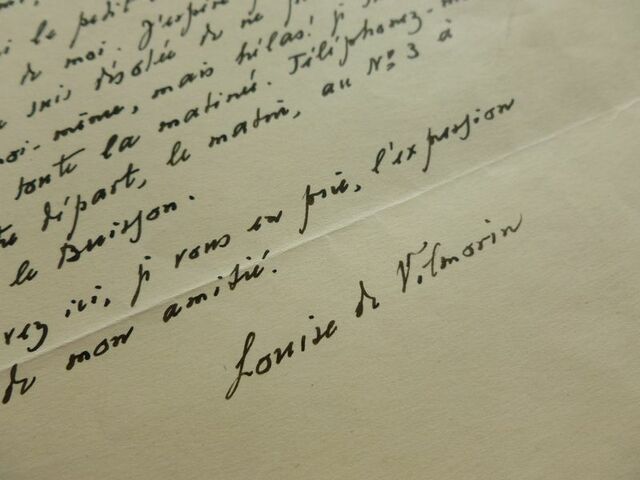 le petit
de moi. J'espère
suis désolée de ne
moi-même, mais hélas! je
toute la matinée. Téléphonez-m
départ, le matin, au No 3 à
le Buisson.
rez ici, je vous en prie, l'expression
de mon amitié.
Louise de Vilmorin